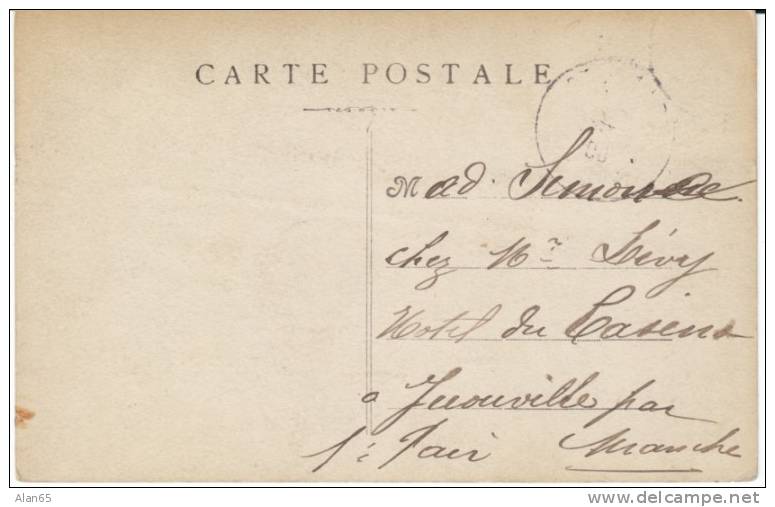 CARTE POSTALE
Mad. Simonne
chez Mr Lévy
Hotel du Casino
a Jullouville par
St Pair Manche
Alan65
delcampe.net